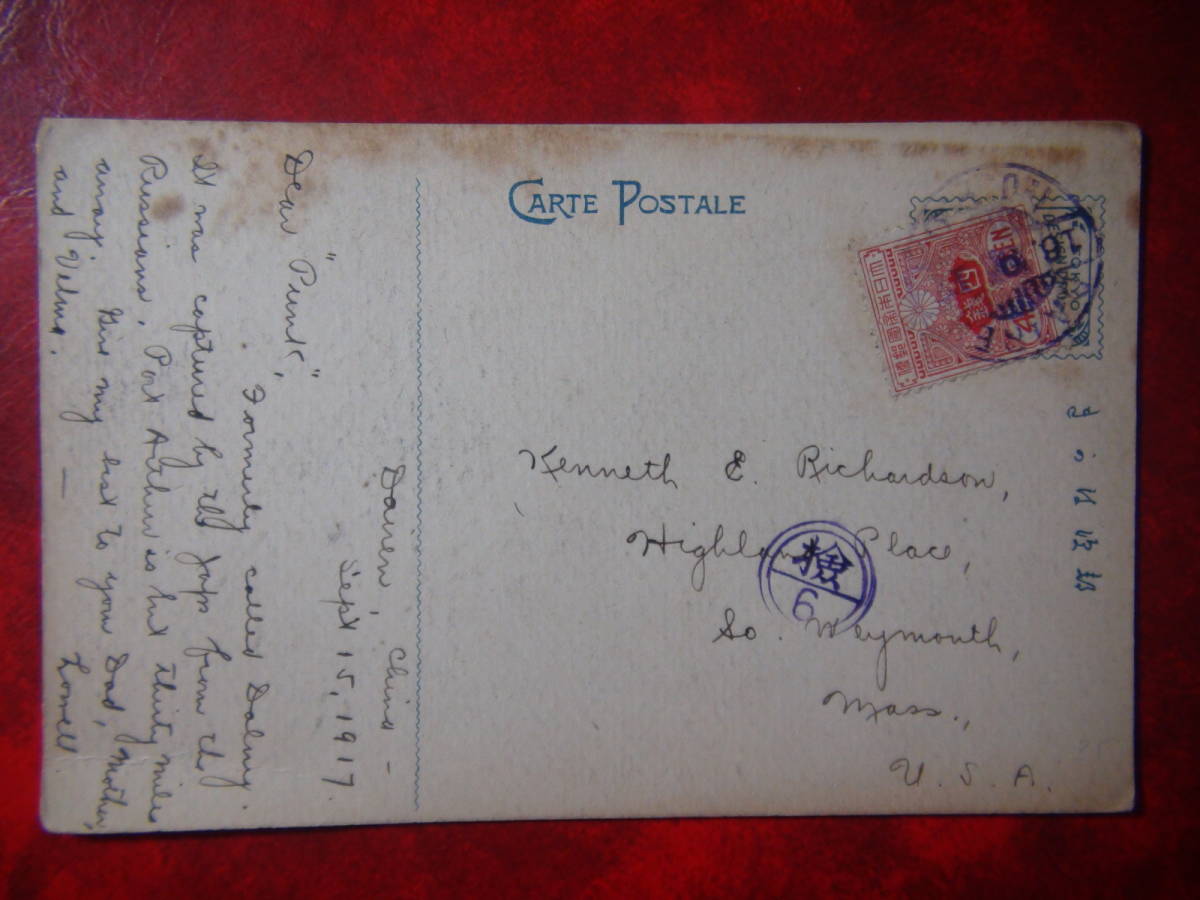 CARTE POSTALE
大日本帝國郵便
四銭
SEN
TOKYO
Dairen, China -
Sep't 15, 1917.
Dear "Punk",
Formerly called Dalny.
It was captured by the Japs from the
Russians. Port Arthur is but thirty miles
away. Give my best to your Dad, Mother,
and Velma. —
Lowell.
Kenneth E. Richardson,
Highland Place,
So. Weymouth,
Mass.,
U. S. A.
檢
6